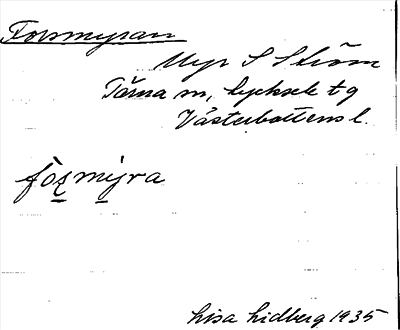 Forsmyran
Myr S Ström
Tärna sn, Lycksele tg
Västerbottens l.
Lisa Lidberg 1935